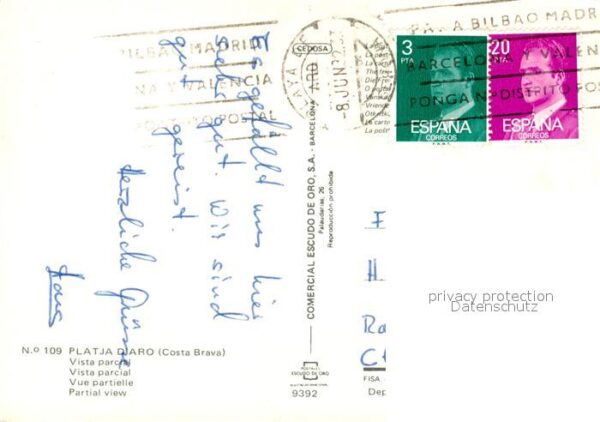 Es gefällt uns hier
sehr gut. Wir sind
gut gereist.
Herzliche Grüsse
N.º 109 PLATJA D'ARO (Costa Brava)
Vista parcial
Vista parcial
Vue partielle
Partial view
CEDOSA
COMERCIAL ESCUDO DE ORO, S.A. - BARCELONA
Palaudarias, 26
Reproducción prohibida
POSTALES
ESCUDO DE ORO
9392
FISA
Dep
BILBAO MADRID
NA Y VALENCIA
POSTAL
PLAYA
ARO
-8.JUN
A BILBAO MADR
BARCELONA Y VALEN
PONGA Nº DISTRITO POSTAL
3
PTA
ESPAÑA
CORREOS
20
ESPAÑA
CORREOS
privacy protection
Datenschutz